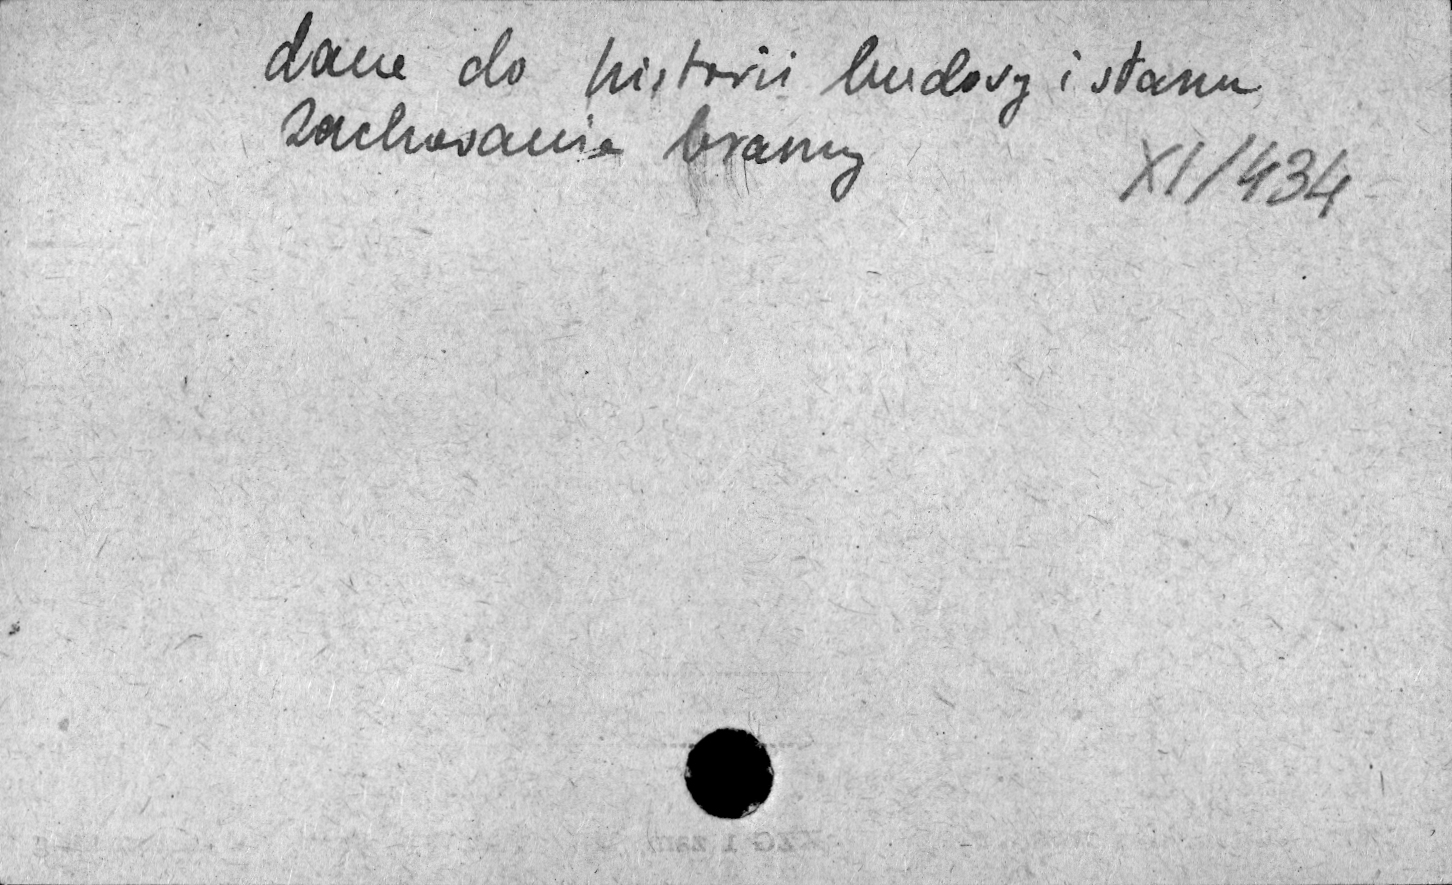 dane do historii budowy i stanu
zachowania bramy
XI/434